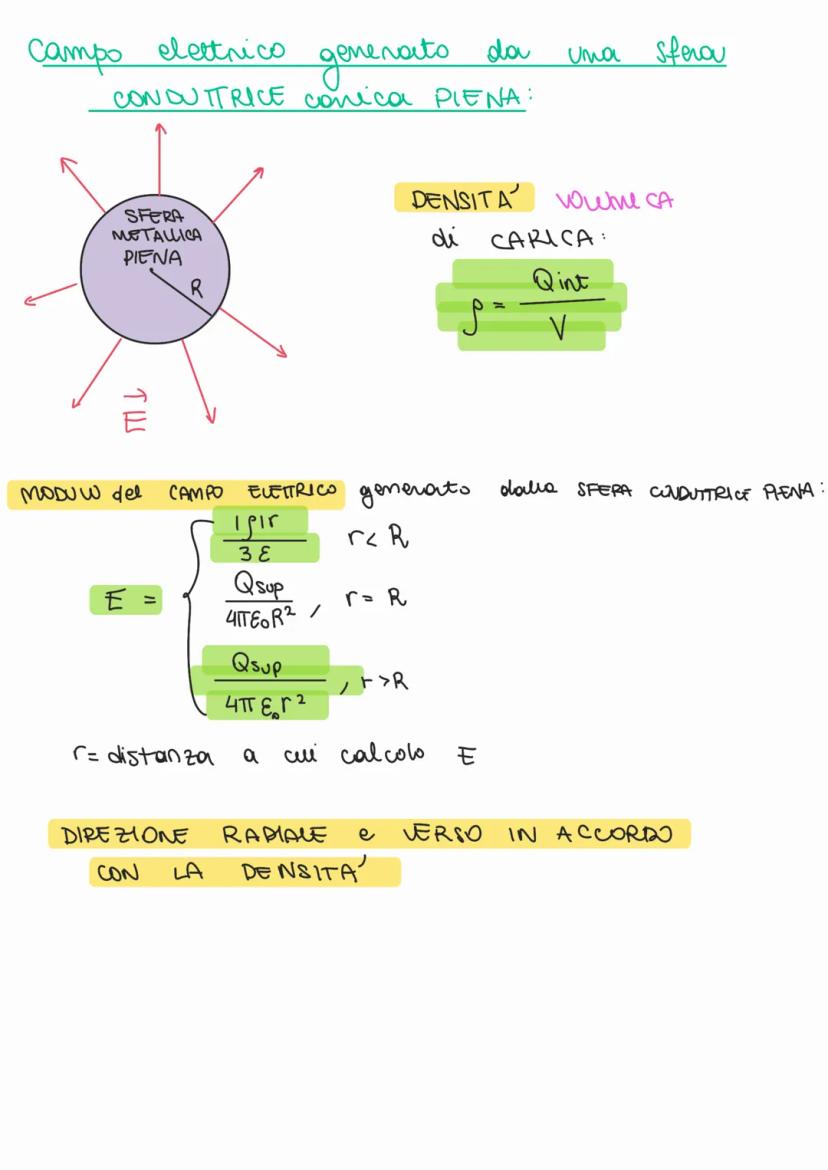 Campo elettrico generato da una sfera
CONDUTTRICE carica PIENA:
SFERA
METALLICA
PIENA
R
E
DENSITA'
VOLUMICA
di CARICA:
ρ = Qint / V
MODULO del CAMPO ELETTRICO generato dalla SFERA CONDUTTRICE PIENA:
E =
|ρ|r / 3ε r < R
Qsup / 4πε₀R², r = R
Qsup / 4πε₀r², r > R
r = distanza a cui calcolo E
DIREZIONE RADIALE e VERSO IN ACCORDO
CON LA DENSITA'